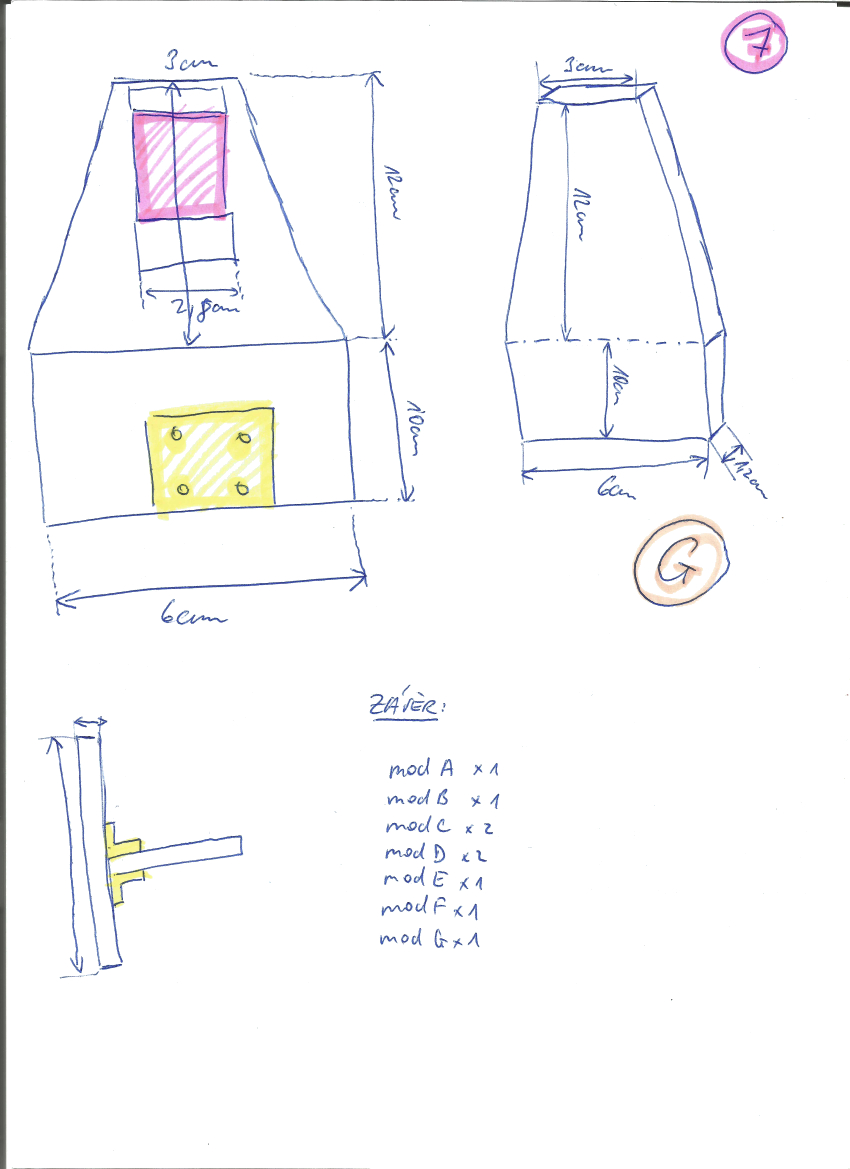 7
3cm
12cm
2,8cm
10cm
6cm
3cm
12cm
10cm
1,2cm
6cm
G
ZÁVĚR:
mod A x 1
mod B x 1
mod C x 2
mod D x 2
mod E x 1
mod F x 1
mod G x 1